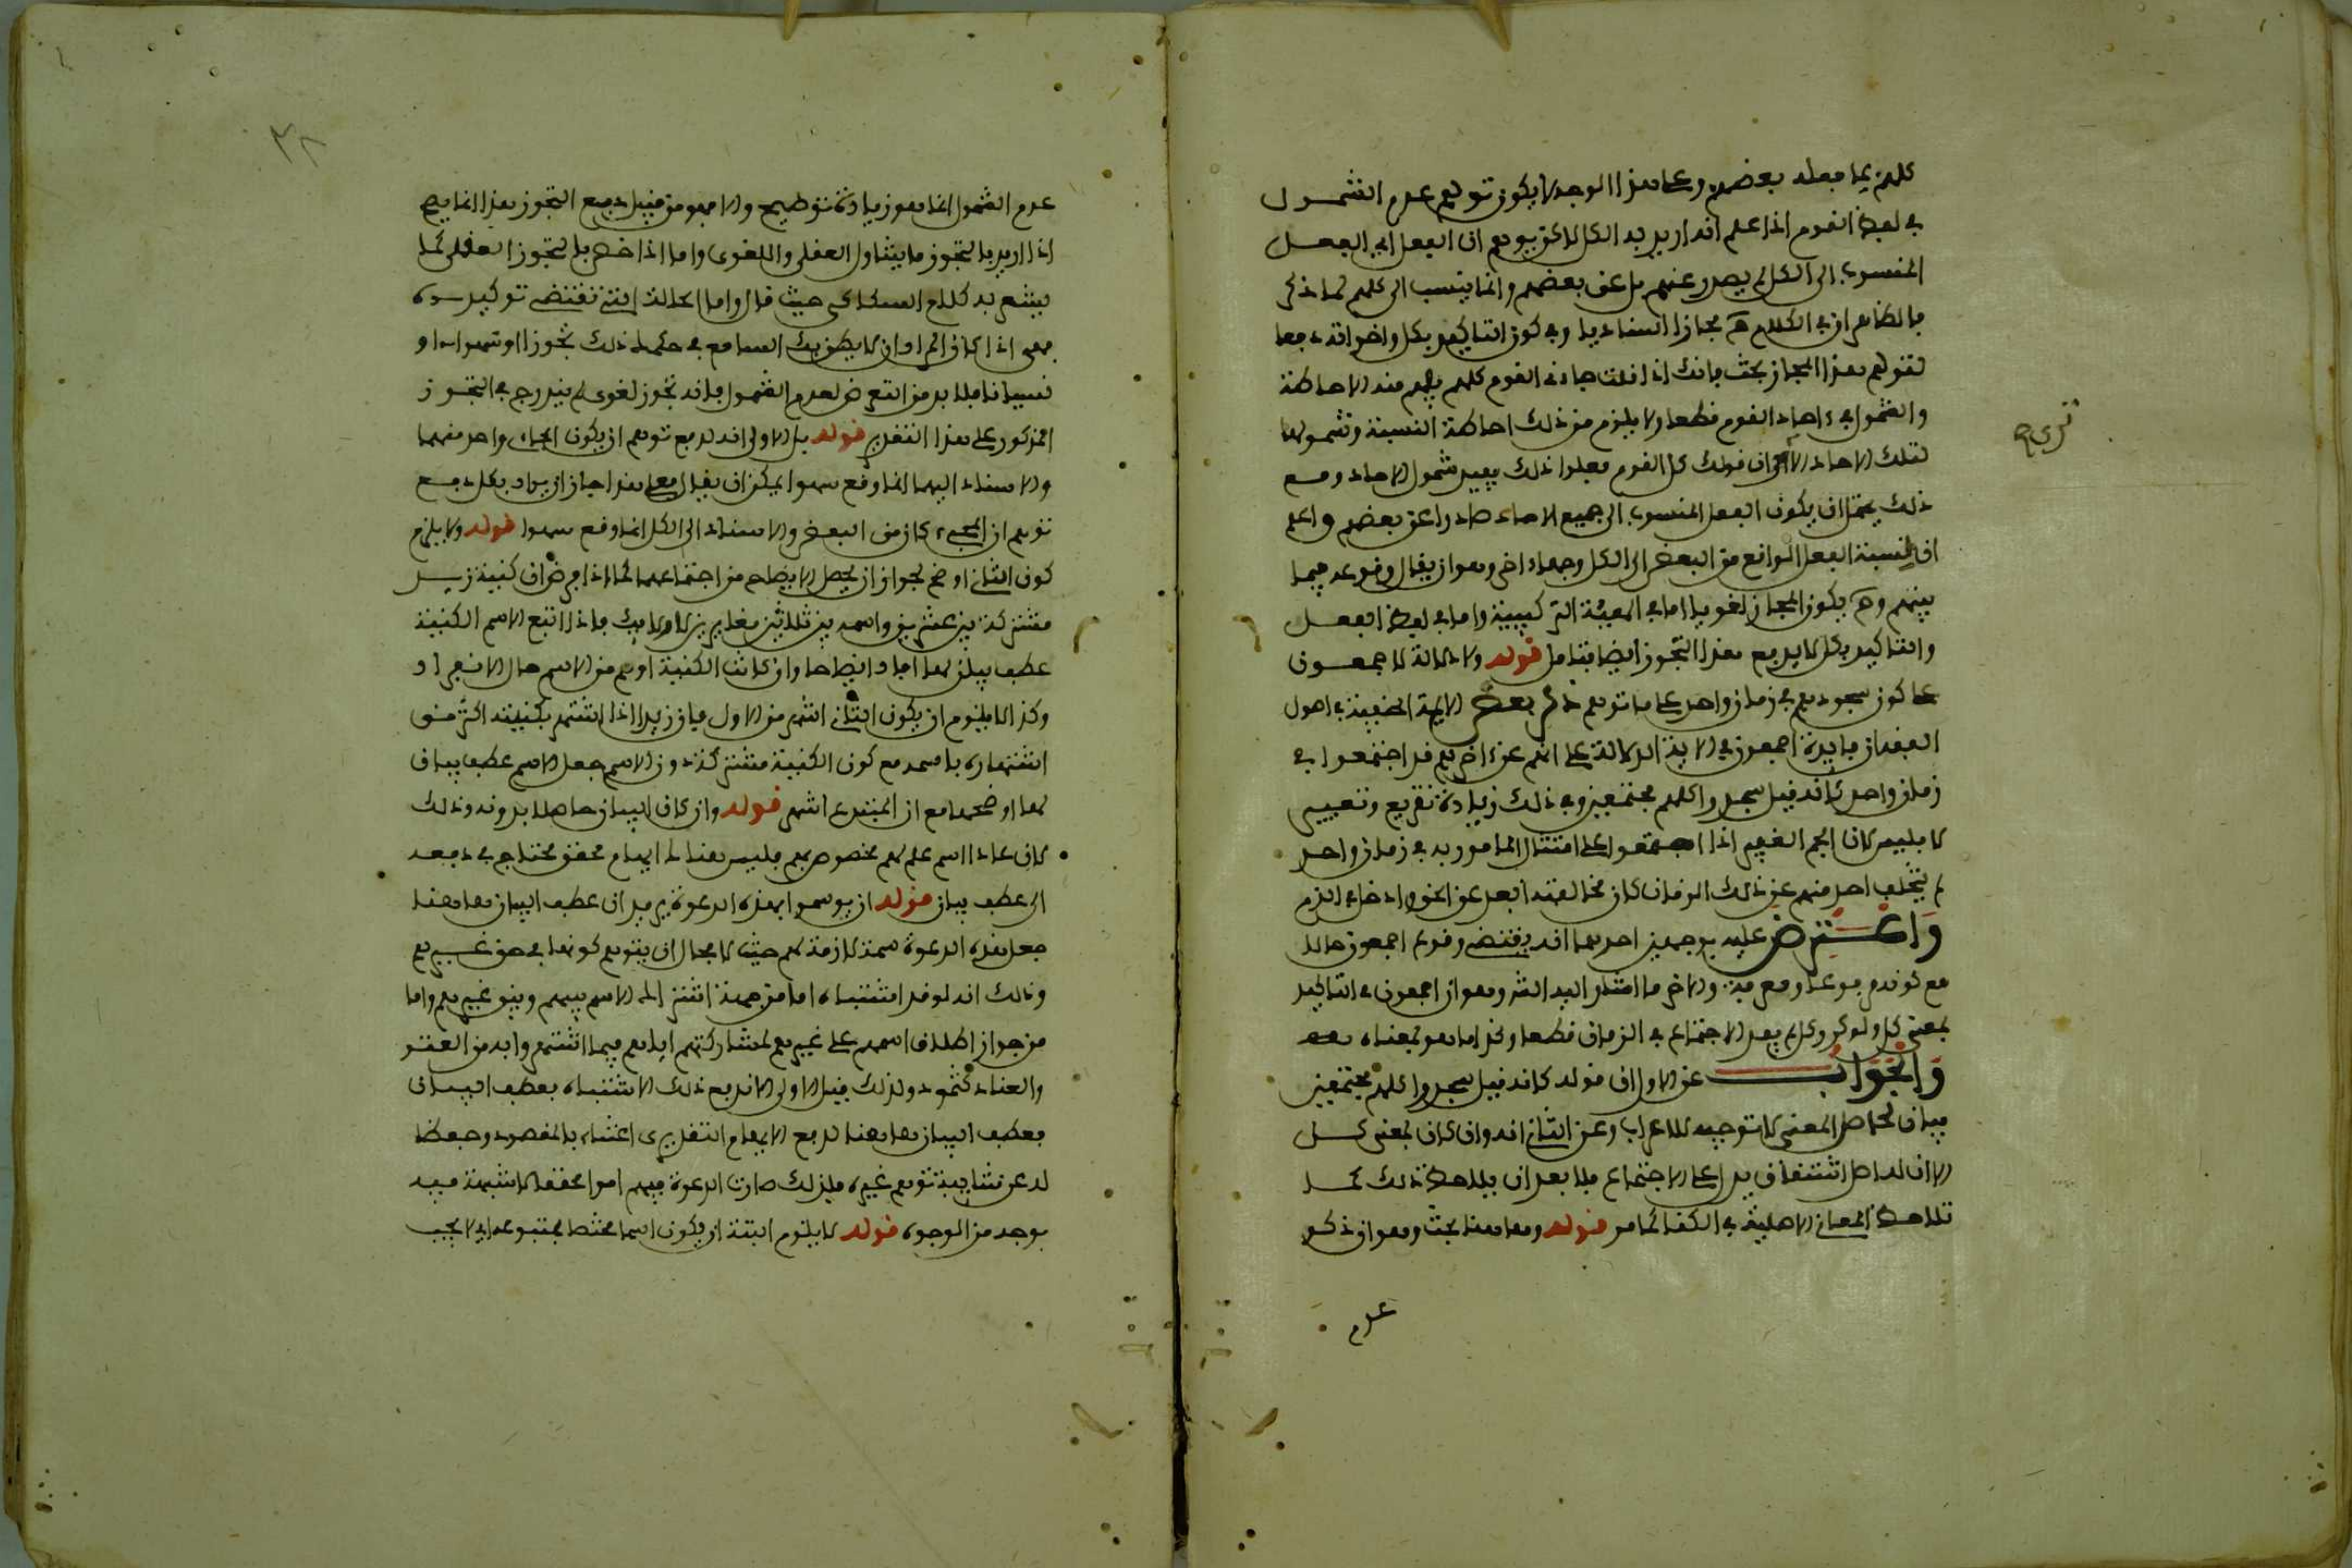 كلهم بما فعله بعضهم وعلى هذا الوجه لا يكون توهم عدم الشمول
في لفظ القوم اذا علم انه اريد به الكل لاكن يوهم ان الفعل اي الفعل
المنسوب الى الكل لم يصدر عنهم بل عن بعضهم وانما ينسب الى كلهم لما ذكر
فالظاهر ان في الكلام ح مجازا اسناديا وفي كون التاكيد بكل واخواته دفعا
لتوهم هذا المجاز بحث فانك اذا قلت جاءني القوم كلهم يفهم منه الاحاطة
والشمول في ءاحاد القوم قطعا ولا يلزم من ذلك احاطة النسبة وشمولها
لتلك الاحاد الا ترى ان قولك كل القوم فعلوا ذلك يفيد شمول الاحاد ومع
ذلك يحتمل ان يكون الفعل المنسوب الى جميع الاحاد صادرا عن بعضهم واعلم
ان لنسبة الفعل الواقع من البعض الى الكل وجها ءاخر وهو ان يقال وقوعه فيما
بينهم وح يكون المجاز لغويا اما في الهيئة التركيبية واما في لفظ الفعل
والتاكيد بكل لا يدفع هذا التجوز ايضا فتامل قوله ولا دلالة لاجمعون
على كون سجودهم في زمان واحد على ما توهم ذكر بعض الايمة الحنفية في اصول
الفقه ان فايدة اجمعون في الاية الدلالة على انهم عن ءاخرهم قد اجتمعوا في
زمان واحد كانه قيل سجدوا كلهم مجتمعين وفي ذلك زيادة تقريع وتعيير
لابليس لان الجم الغفير اذا اجتمعوا على امتثال المامور به في زمان واحد
لم يتخلف احد منهم عن ذلك الزمان كان مخالفته ابعد عن الحق وادخل في الذم
واعترض عليه بوجهين احدهما انه يقتضي وقوع اجمعون حالا
مع كونه مرفوعا ومعرفة والاخر ما اشار اليه الشر وهو ان اجمعون في التاكيد
بمعنى كل ولو كرر كل لم يفد الاجتماع في الزمان قطعا وكذا ما هو بمعناه
والجواب عن الاول ان قوله كانه قيل سجدوا كلهم مجتمعين
بيان لحاصل المعنى لا توجيه للاعراب وعن الثاني انه وان كان بمعنى كل
الا ان له اصل اشتقاق يدل على الاجتماع فلا بعد ان يلاحظ ذلك كما
تلاحظ المعاني الاصلية في الكنا كما مر قوله وهاهنا بحث وهو ان ذكر
عدم
ترى ص
٣٨
عدم الشمول انما هو زيادة توضيح والا فهو من قبيل دفع التجوز هذا انما يصح
اذا اريد بالتجوز ما يتناول العقلي واللغوي واما اذا خص بالتجوز العقلي كما
يشعر به كلام السكاكي حيث قال واما الحالة التي تقتضي توكيده
فهي اذا كان المراد ان لا يظن بك السامع في حكمك ذلك تجوزا او سهوا او
نسيانا فلا بد من التعرض لعدم الشمول فانه تجوز لغوي لم يندرج في التجوز
المذكور على هذا التقدير قوله بل الاولى انه لدفع توهم ان يكون الجاءي واحد منهما
والاسناد اليهما انما وقع سهوا يمكن ان يقال فعلى هذا جاز ان يراد بكل دفع
توهم ان المجيء كان من البعض والاسناد الى الكل انما وقع سهوا قوله ولا يلزم
كون الثاني اوضح لجواز ان يحصل الايضاح من اجتماعهما كما اذا فرض ان كنية زيد
مشتركة بين عشرين واسمه بين ثلاثين مغايرين لاولايك فاذا اتبع الاسم الكنية
عطف بيان لها افاد ايضاحا وان كانت الكنية اوضح من الاسم حال الانفراد
وكذا لا يلزم ان يكون الثاني اشهر من الاول فان زيدا اذا اشتهر بكنيته اكثر من
اشتهاره باسمه مع كون الكنية مشتركة دون الاسم جعل الاسم عطف بيان
لها اوضحها مع ان المتبوع اشهر قوله وان كان البيان حاصلا بدونه وذلك
لان عادا اسم علم لهم مخصوص بهم فليس هناك ايهام محقق يحتاج في دفعه
الى عطف بيان قوله ان يوسموا بهذه الدعوة يريد ان عطف البيان هاهنا
جعل هذه الدعوة سمة لازمة لهم حيث لا مجال ان يتوهم كونها في حق غيرهم
وذلك انه لو قدر اشتباه اما من جهة اشتراك الاسم بينهم وبين غيرهم واما
من جواز اطلاق اسمهم على غيرهم لمشاركتهم اياهم فيما اشتهروا به من العتو
والعناد كثمود ولذلك قيل الاولى الاندفع ذلك الاشتباه بعطف البيان
فعطف البيان هاهنا لدفع الايهام التقديري اعتناء بالمقصود وحفظا
له عن شايبة توهم غيره فلذلك صارت الدعوة فيهم امرا محققا لا شبهة فيه
بوجه من الوجوه قوله لا يلزم البتة ان يكون اسما مختصا بمتبوعه اي لا يجب